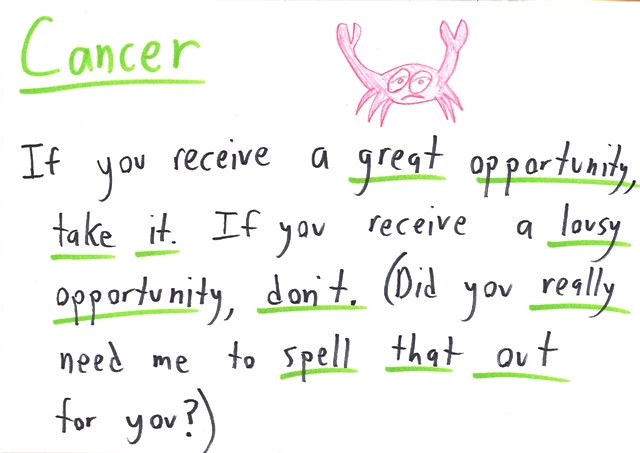 Cancer
If you receive a great opportunity,
take it. If you receive a lousy
opportunity, don't. (Did you really
need me to spell that out
for you?)